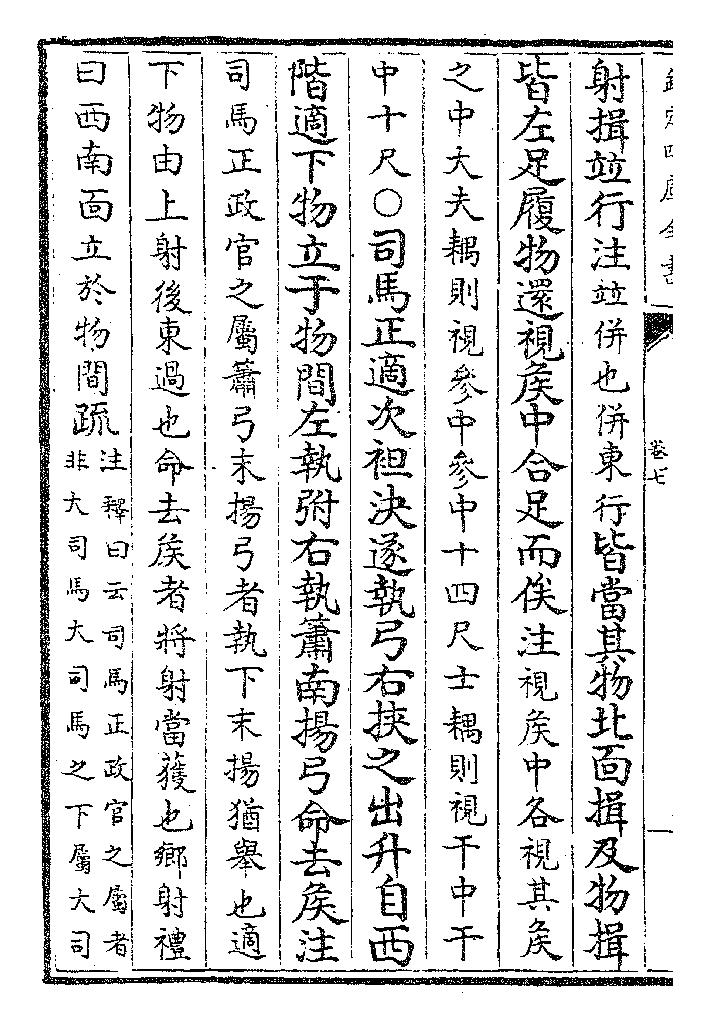 欽定四庫全書
卷七
一
射揖竝行注竝併也併東行皆當其物北面揖及物揖
皆左足履物還視矦中合足而俟注視矦中各視其矦
之中大夫耦則視參中參中十四尺士耦則視干中干
中十尺○司馬正適次袒決遂執弓右挾之出升自西
階適下物立于物間左執弣右執簫南揚弓命去矦注
司馬正政官之屬簫弓末揚弓者執下末揚猶舉也適
下物由上射後東過也命去矦者將射當獲也鄉射禮
曰西南面立於物間疏
注釋曰云司馬正政官之屬者
非大司馬大司馬之下屬大司